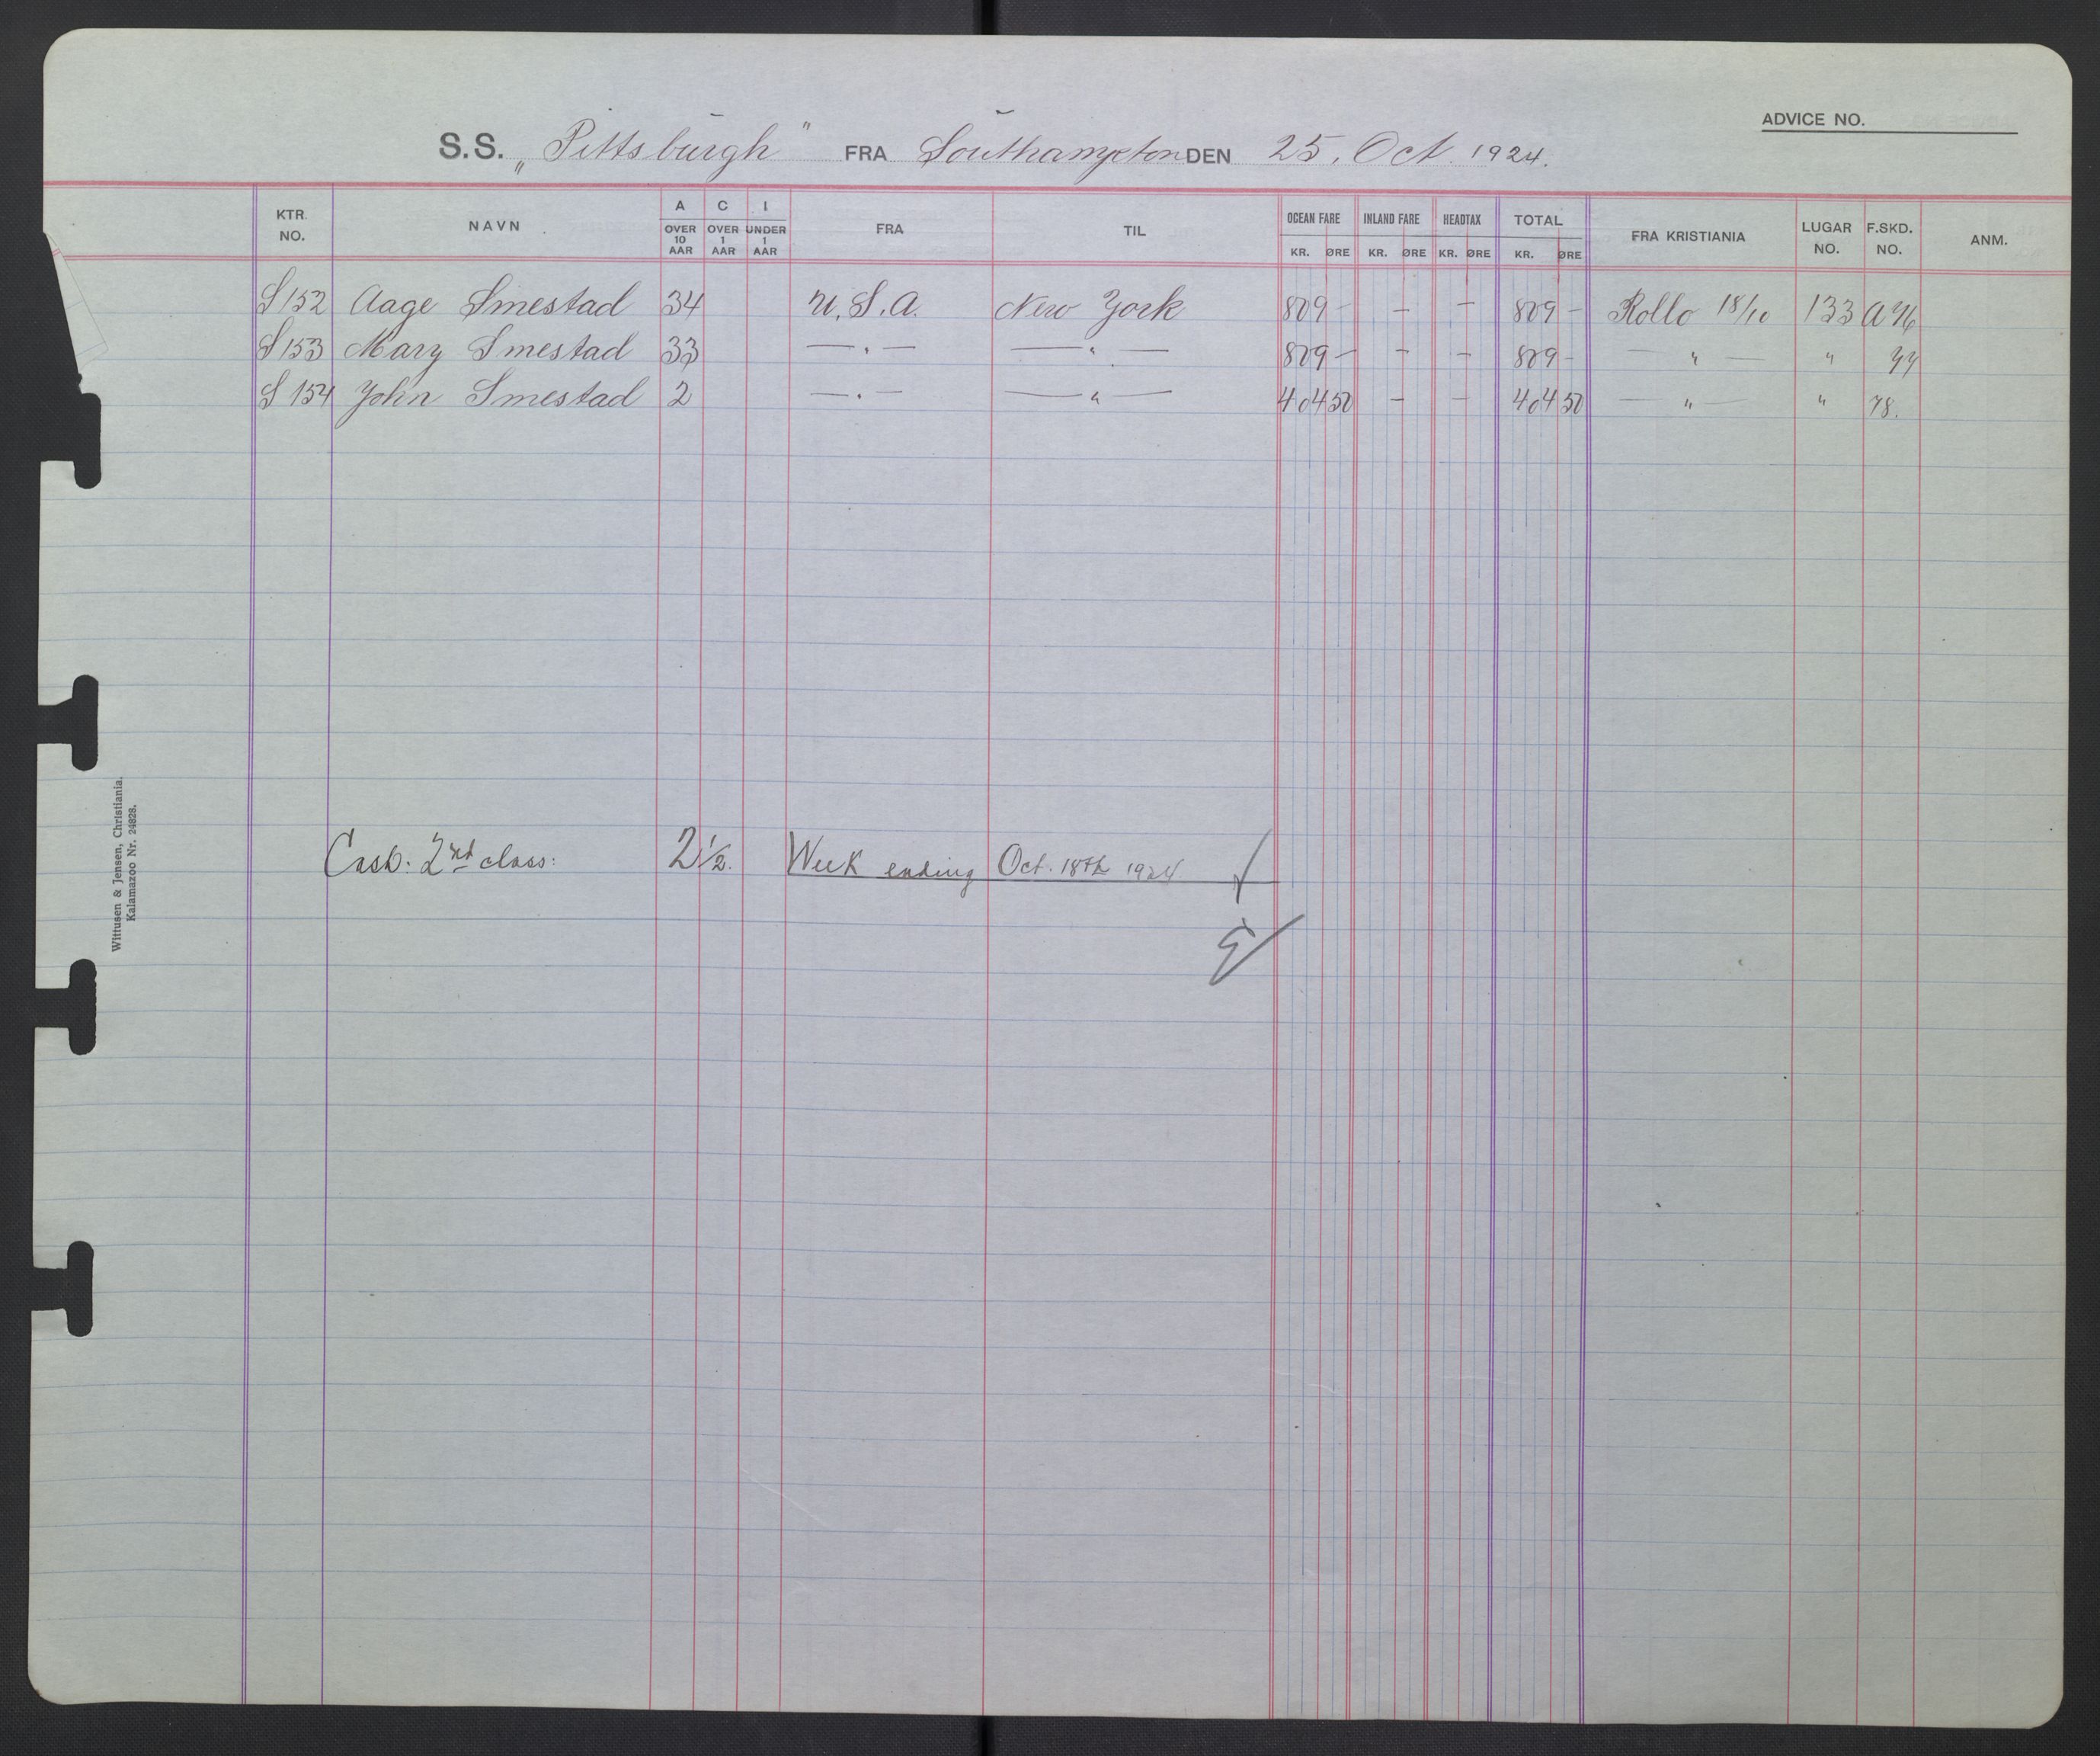 ADVICE NO.
S.S. „Pittsburgh" FRA Southampton DEN 25. Oct. 1924.
KTR. NO. NAVN A OVER 10 AAR C OVER 1 AAR I UNDER 1 AAR FRA TIL OCEAN FARE KR. ØRE INLAND FARE KR. ØRE HEADTAX KR. ØRE TOTAL KR. ØRE FRA KRISTIANIA LUGAR NO. F.SKD. NO. ANM.
S 152 Aage Smestad 34 U.S.A. New York 809 - - - 809 - Rollo 18/10 133 A 76
S 153 Mary Smestad 33 — " — — " — 809 - - - 809 - — " — " 77
S 154 John Smestad 2 — " — — " — 404 50 - - 404 50 — " — " 78.
Cash: 2nd class: 2 1/2. Week ending Oct. 18th 1924
Wittusen & Jensen, Christiania.
Kalamazoo Nr. 24828.